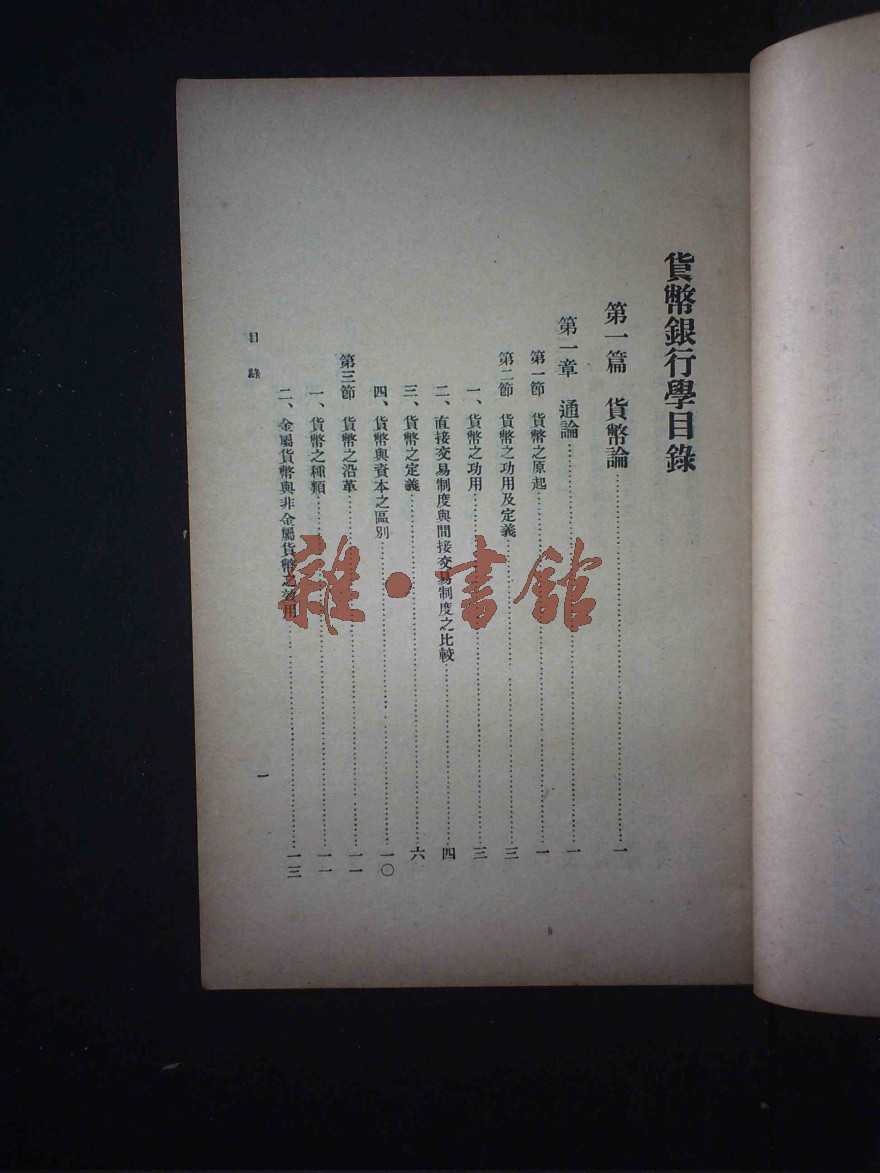 貨幣銀行學目錄
第一篇 貨幣論……一
第一章 通論……一
第一節 貨幣之原起……一
第二節 貨幣之功用及定義……三
一、貨幣之功用……三
二、直接交易制度與間接交易制度之比較……四
三、貨幣之定義……六
四、貨幣與資本之區別……一〇
第三節 貨幣之沿革……一一
一、貨幣之種類……一一
二、金屬貨幣與非金屬貨幣之效用……一三
目錄
一
雜·書館